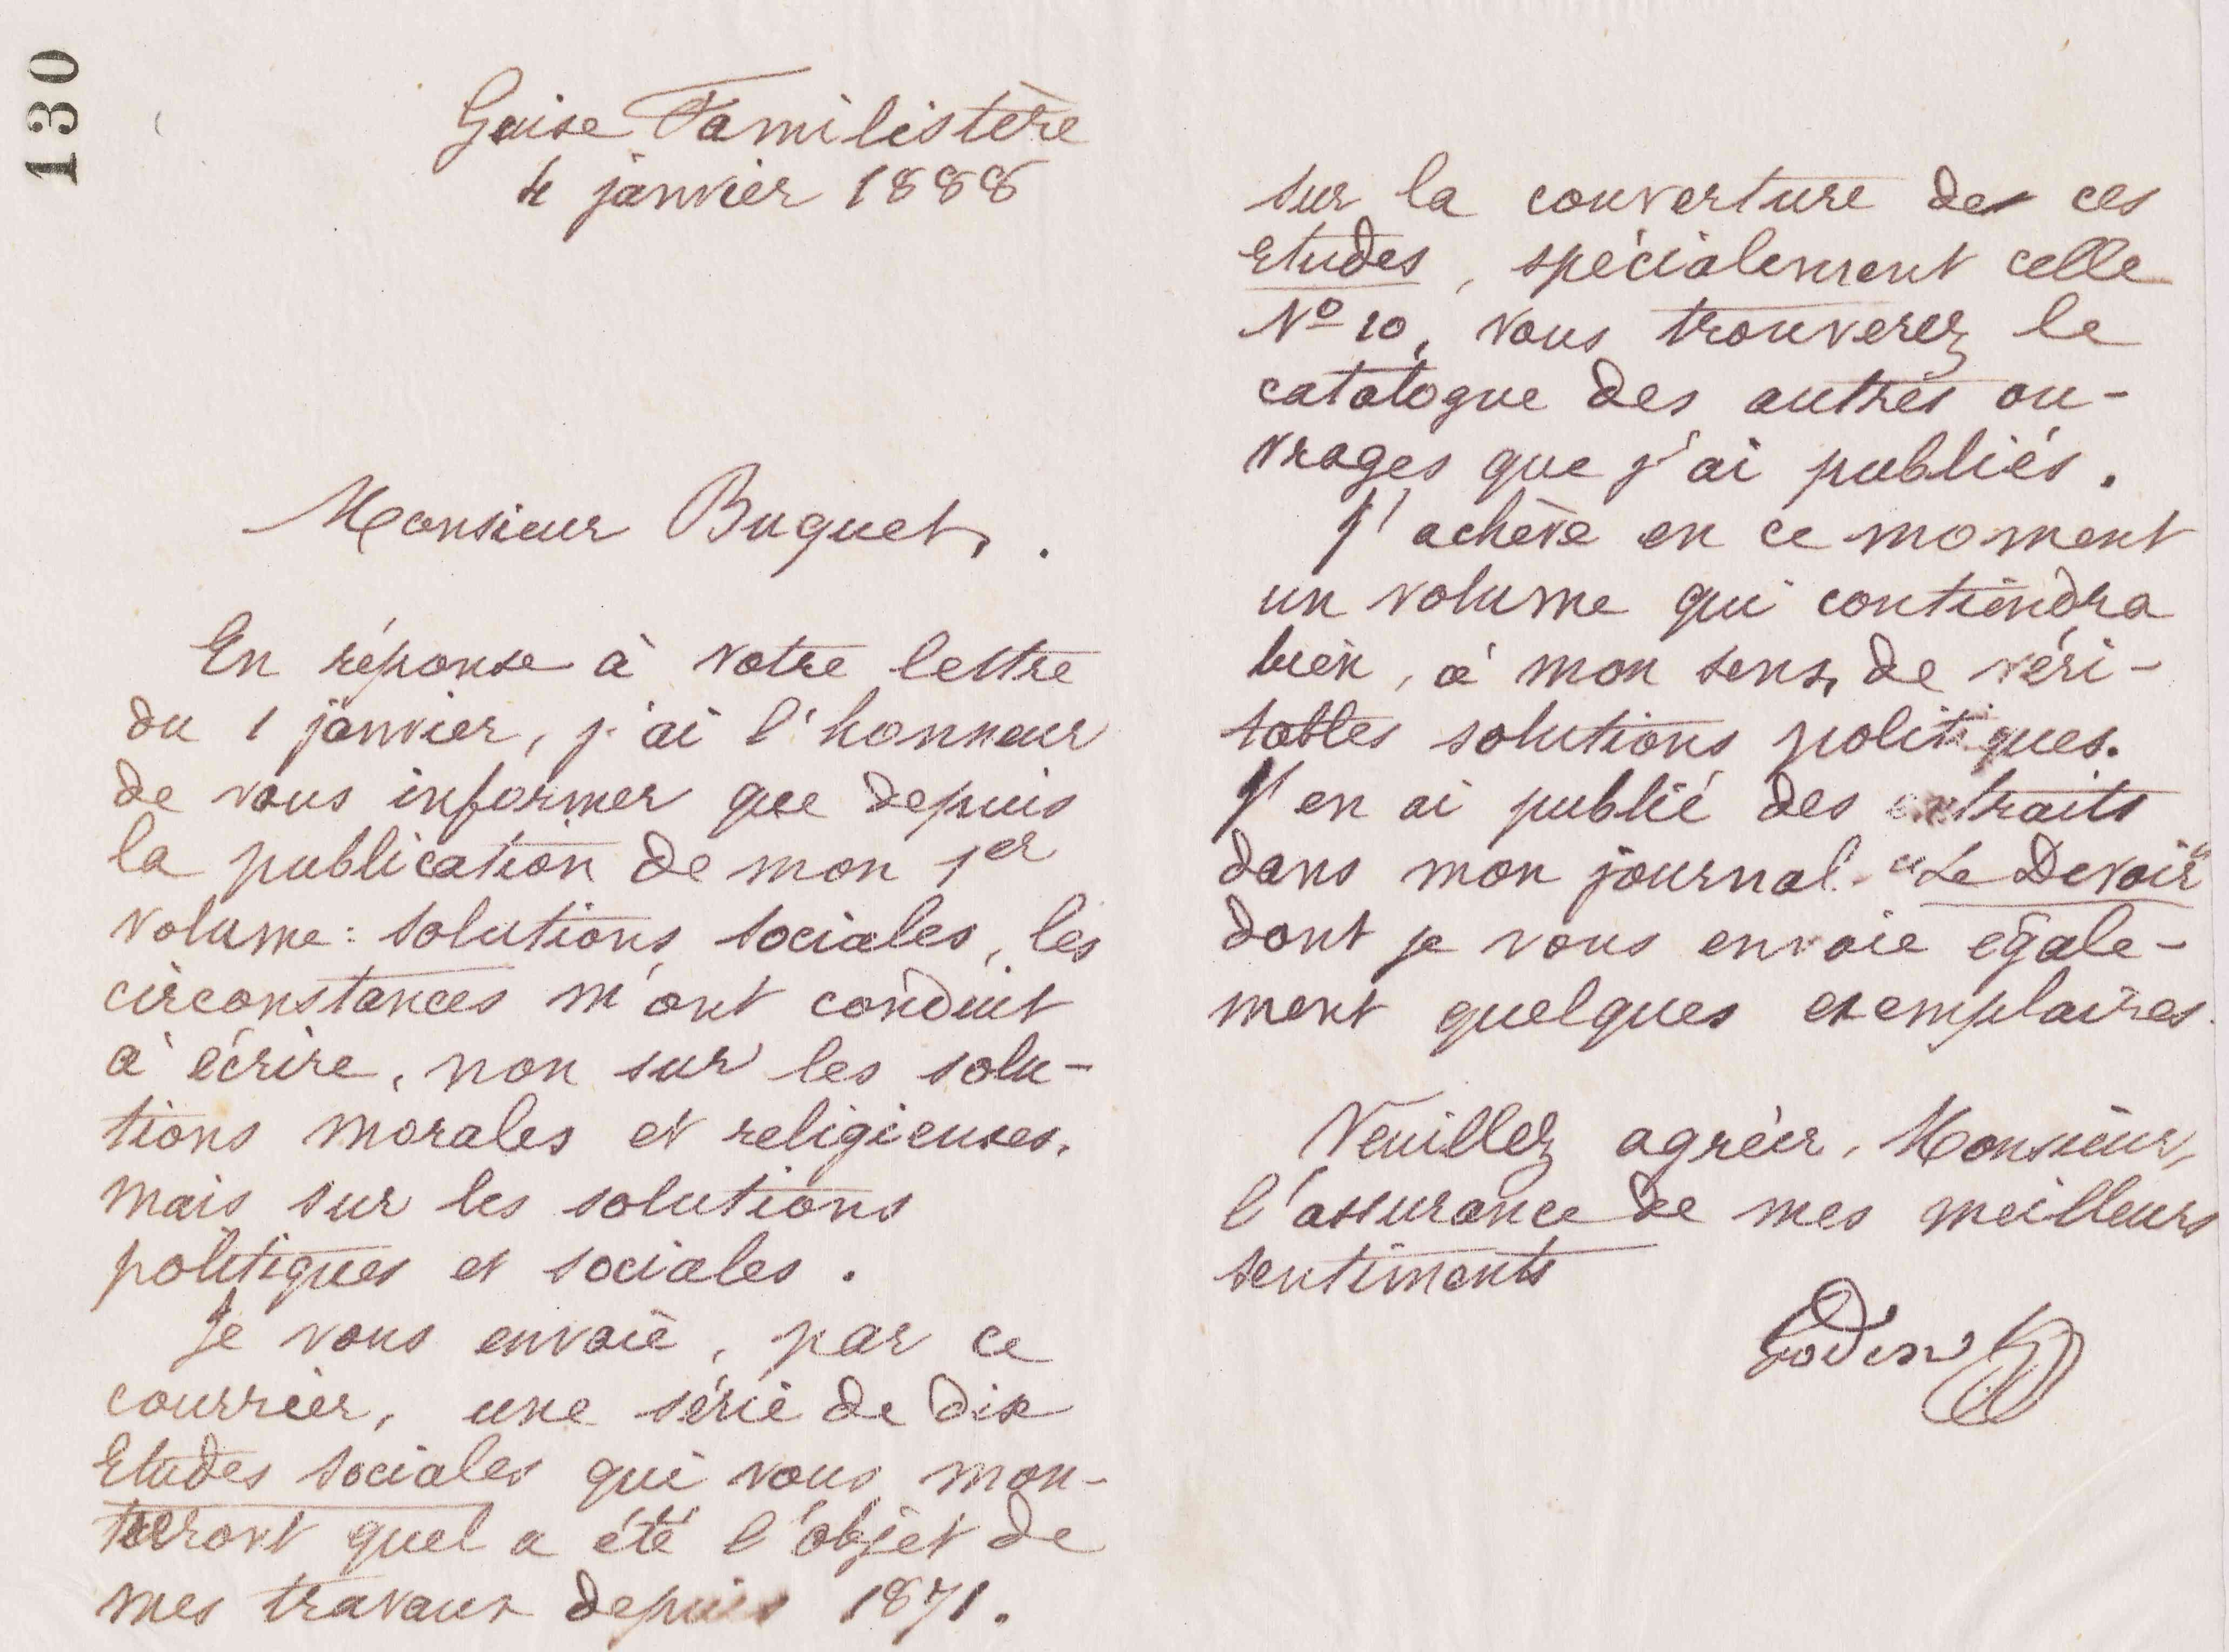 130
Guise Familistère
4 janvier 1888
Monsieur Buquet,.
En réponse à votre lettre
du 1 janvier, j'ai l'honneur
de vous informer que depuis
la publication de mon 1er
volume: solutions sociales, les
circonstances m'ont conduit
à écrire, non sur les solu-
tions morales et religieuses,
mais sur les solutions
politiques et sociales.
Je vous envoie, par ce
courrier, une série de dix
Etudes sociales qui vous mon-
treront quel a été l'objet de
mes travaux depuis 1871.
sur la couverture de ces
Etudes, spécialement celle
No 10, vous trouverez le
catalogue des autres ou-
vrages que j'ai publiés.
J'achève en ce moment
un volume qui contiendra
bien, à mon sens, de véri-
tables solutions politiques.
J'en ai publié des extraits
dans mon journal "Le Devoir"
dont je vous envoie égale-
ment quelques exemplaires.
Veuillez agréer, Monsieur,
l'assurance de mes meilleurs
sentiments
Godin